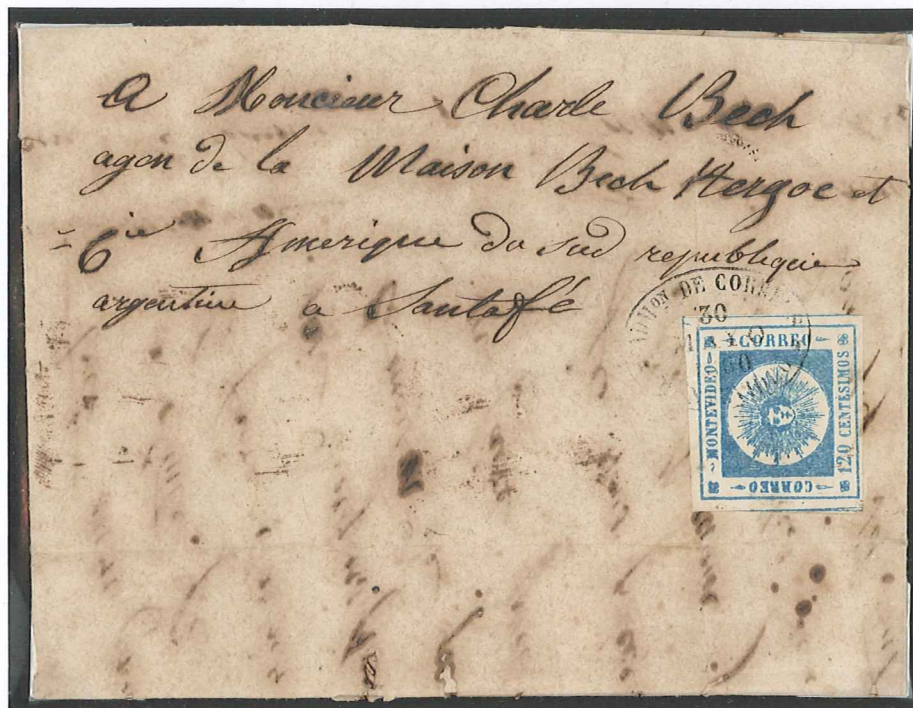 A Moncieur Charle Bech
agen de la Maison Bech Hergoc et
Cie Amerique du sud republique
argentine a Santafé
ADMON DE CORREOS
30
60
CORREO
MONTEVIDEO
120 CENTESIMOS
CORREO